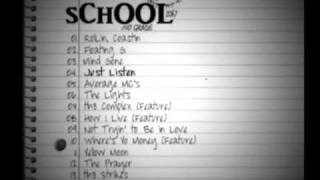 SCHOOL
NO GRADE
01 Rollin, Coastin
02 Floating G
03 Mind Gone
04 Just Listen
05 Average MC's
06 The Lights
07 th3 Complex (Feature)
08 How I Live (Feature)
09 Not Tryin' to Be in Love
10 Where's Yo Money (Feature)
11 Yellow Moon
12 The Prayer
13 th3 Strikes